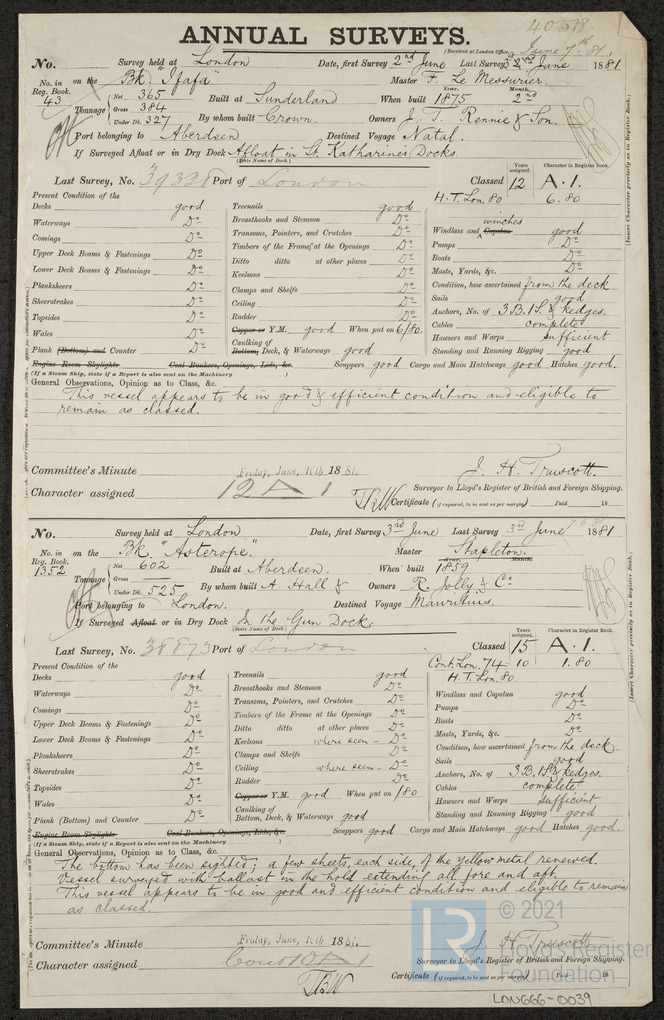 40518
ANNUAL SURVEYS.
(Received at London Office, June 7th 81,
No. Survey held at London Date, first Survey 2nd June Last Survey 3rd June 1881
No. in Reg. Book. 43 on the Bk. "Ifafa" Master F. Le Messurier
Tonnage Net 365 Gross 384 Under Dk. 327 Built at Sunderland When built Year. 1875 Month. 2nd
By whom built Crown. Owners J. T. Rennie & Son.
Port belonging to Aberdeen Destined Voyage Natal.
If Surveyed Afloat or in Dry Dock Afloat in St. Katharine Docks.
(State Name of Dock.)
(Insert Character precisely as in Register Book.)
Last Survey, No. 39328 Port of London Classed Years assigned. 12 Character in Register Book. A.1.
H.T. Lon. 80 6.80
Present Condition of the
Decks good
Waterways Do
Comings Do
Upper Deck Beams & Fastenings Do
Lower Deck Beams & Fastenings Do
Planksheers Do
Sheerstrakes Do
Topsides Do
Wales Do
Plank (Bottom) and Counter Do
Treenails good
Breasthooks and Stemson Do
Transoms, Pointers, and Crutches Do
Timbers of the Frame at the Openings Do
Ditto ditto at other places Do
Keelsons Do
Clamps and Shelfs Do
Ceiling Do
Rudder Do
Copper or Y.M. good When put on 6/80.
Caulking of Bottom, Deck, & Waterways good
winches
Windlass and Capstan good
Pumps Do
Boats Do
Masts, Yards, &c. Do
Condition, how ascertained from the deck
Sails good
Anchors, No. of 3 B. 1 S. & kedges.
Cables complete
Hawsers and Warps sufficient
Standing and Running Rigging good
Engine Room Skylights Coal Bunkers, Openings, Lids, &c. Scuppers good Cargo and Main Hatchways good Hatches good.
(If a Steam Ship, state if a Report is also sent on the Machinery
General Observations, Opinion as to Class, &c.
This vessel appears to be in good & efficient condition and eligible to
remain as classed.
Committee's Minute Friday, June, 10th 1881.
J. H. Truscott.
Character assigned 12 A 1
Surveyor to Lloyd's Register of British and Foreign Shipping.
TBW Certificate (if required, to be sent as per margin) Paid 18
No. Survey held at London Date, first Survey 3rd June Last Survey 3rd June 1881
No. in Reg. Book. 1352 on the Bk. "Asterope." Master Stapleton.
Tonnage Net 602 Gross Under Dk. 525 Built at Aberdeen. When built Year. 1859 Month.
By whom built A. Hall & Owners R. Jolly & Co
Port belonging to London. Destined Voyage Mauritius.
If Surveyed Afloat or in Dry Dock In the Gun Dock.
(State Name of Dock.)
(Insert Character precisely as in Register Book.)
Last Survey, No. 38873 Port of London Classed Years assigned. 15 Character in Register Book. A.1.
Cont. Lon. 74 10 1.80
H.T. Lon. 80
Present Condition of the
Decks good
Waterways Do
Comings Do
Upper Deck Beams & Fastenings Do
Lower Deck Beams & Fastenings Do
Planksheers Do
Sheerstrakes Do
Topsides Do
Wales Do
Plank (Bottom) and Counter Do
Treenails good
Breasthooks and Stemson Do
Transoms, Pointers, and Crutches Do
Timbers of the Frame at the Openings Do
Ditto ditto at other places Do
Keelsons where seen - Do
Clamps and Shelfs Do
Ceiling where seen - Do
Rudder Do
Copper or Y.M. good When put on 1/80
Caulking of Bottom, Deck, & Waterways good
Windlass and Capstan good
Pumps Do
Boats Do
Masts, Yards, &c. Do
Condition, how ascertained from the deck.
Sails good
Anchors, No. of 3 B. 1 S. & kedges.
Cables complete
Hawsers and Warps sufficient
Standing and Running Rigging good
Engine Room Skylights Coal Bunkers, Openings, Lids, &c. Scuppers good Cargo and Main Hatchways good Hatches good.
(If a Steam Ship, state if a Report is also sent on the Machinery
General Observations, Opinion as to Class, &c.
The bottom has been sighted; a few sheets, each side, of the Yellow metal renewed.
Vessel surveyed with ballast in the hold extending all fore and aft.
This vessel appears to be in good and efficient condition and eligible to remain
as classed.
Committee's Minute Friday, June, 10th 1881.
J. H. Truscott
Character assigned Cont 10 A 1
Surveyor to Lloyd's Register of British and Foreign Shipping.
TBW Certificate (if required, to be sent as per margin) Paid 18
LR © 2021
Lloyd's Register
Foundation
LON666-0039